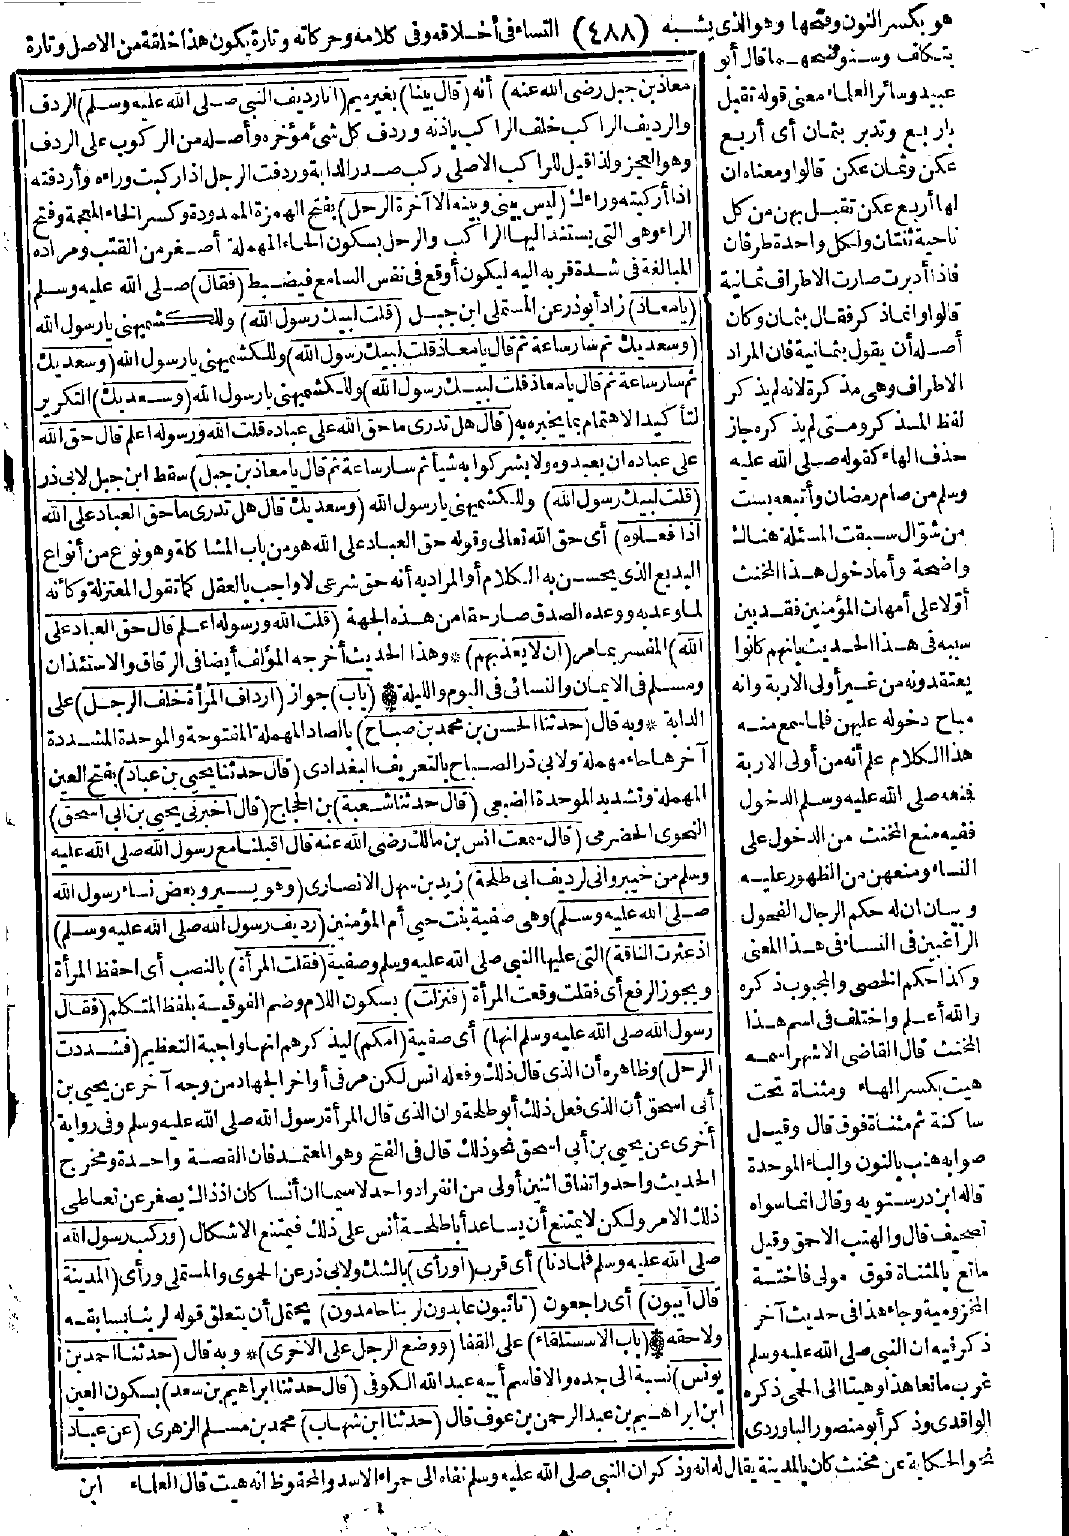 هو بكسر النون وفتحها وهو الذى يشبه (٤٨٨) النساء فى أخلاقه وفى كلامه وحركاته وتارة يكون هذا خلقة من الاصل وتارة
بتكلف وسنوضحهما قال أبو
عبيد وسائر العلماء معنى قوله تقبل
باربع وتدبر بثمان أى أربع
عكن وثمان عكن قالوا ومعناه ان
لها أربع عكن تقبل بهن من كل
ناحية ثنتان ولكل واحدة طرفان
فاذا أدبرت صارت الاطراف ثمانية
قالوا وانماذكر فقال بثمان وكان
أصله أن يقول بثمانية فان المراد
الاطراف وهى مذكرة لانه لم يذكر
لفظ المذكر ومتى لم يذكره جاز
حذف الهاء كقوله صلى الله عليه
وسلم من صام رمضان وأتبعه بست
من شوال سبقت المسئلة هناك
واضحة وأما دخول هذا المخنث
أولا على أمهات المؤمنين فقد بين
سببه فى هذا الحديث بانهم كانوا
يعتقدونه من غير أولى الاربة وانه
مباح دخوله عليهن فلما سمع منه
هذا الكلام علم أنه من أولى الاربة
فمنعه صلى الله عليه وسلم الدخول
ففيه منع المخنث من الدخول على
النساء ومنعهن من الظهور عليه
وبيان ان له حكم الرجال الفحول
الراغبين فى النساء فى هذا المعنى
وكذا حكم الخصى والمجبوب ذكره
والله أعلم واختلف فى اسم هذا
المخنث قال القاضى الاشهر اسمه
هيت بكسر الهاء ومثناة تحت
ساكنة ثم مثناة فوق قال وقيل
صوابه هنب بالنون والباء الموحدة
قاله ابن درستويه وقال انما سواه
تصحيف قال والهنب الاحمق وقيل
ماتع بالمثناة فوق مولى فاختة
المخزومية وجاء هذا فى حديث آخر
ذكر فيه ان النبى صلى الله عليه وسلم
غرب ماتعا هذا وهيتا الى الحمى ذكره
الواقدى وذكر أبو منصور الباوردى
نحو الحكاية عن مخنث كان بالمدينة يقال له انه وذكر ان النبى صلى الله عليه وسلم نفاه الى حمراء الاسد والمحفوظ انه هيت قال العلماء ابن
معاذ بن جبل رضى الله عنه) أنه (قال بينا) بغير ميم (انا رديف النبى صلى الله عليه وسلم) الردف
والرديف الراكب خلف الراكب باذنه وردف كل شئ مؤخره وأصله من الركوب على الردف
وهو العجز ولذا قيل للراكب الاصلى ركب صدر الدابة وردفت الرجل اذا ركبت وراءه وأردفته
اذا أركبته وراءك (ليس بينى وبينه الا آخرة الرحل) بفتح الهمزة الممدودة وكسر الخاء المعجمة وفتح
الراء وهى التى يستند اليها الراكب والرحل بسكون الحاء المهملة أصغر من القتب ومراده
المبالغة فى شدة قربه اليه ليكون أوقع فى نفس السامع فيضبط (فقال) صلى الله عليه وسلم
(يا معاذ) زاد أبو ذر عن المستملى ابن جبل (قلت لبيك رسول الله) وللكشميهنى يا رسول الله
(وسعديك ثم سار ساعة ثم قال يا معاذ قلت لبيك رسول الله) وللكشميهنى يا رسول الله (وسعديك
ثم سار ساعة ثم قال يا معاذ قلت لبيك رسول الله) وللكشميهنى يا رسول الله (وسعديك) التكرير
لتأكيد الاهتمام بما يخبره به (قال هل تدرى ما حق الله على عباده قلت الله ورسوله اعلم قال حق الله
على عباده ان يعبدوه ولا يشركوا به شيأ ثم سار ساعة ثم قال يا معاذ بن جبل) سقط ابن جبل لابى ذر
(قلت لبيك رسول الله) وللكشميهنى يا رسول الله (وسعديك قال هل تدرى ما حق العباد على الله
اذا فعلوه) أى حق الله تعالى وقوله حق العباد على الله هو من باب المشاكلة وهو نوع من أنواع
البديع الذى يحسن به الكلام أو المراد به أنه حق شرعى لا واجب بالعقل كما تقول المعتزلة وكأنه
لما وعد به ووعده الصدق صار حقا من هذه الجهة (قلت الله ورسوله اعلم قال حق العباد على
الله) المفسر بما مر (ان لا يعذبهم) * وهذا الحديث أخرجه المؤلف أيضا فى الرقاق والاستئذان
ومسلم فى الايمان والنسائى فى اليوم والليلة * (باب) جواز (ارداف المرأة خلف الرجل) على
الدابة * وبه قال (حدثنا الحسن بن محمد بن صباح) بالصاد المهملة المفتوحة والموحدة المشددة
آخرها حاء مهملة ولابى ذر الصباح بالتعريف البغدادى (قال حدثنا يحيى بن عباد) بفتح العين
المهملة وتشديد الموحدة الضبعى (قال حدثنا شعبة) بن الحجاج (قال أخبرنى يحيى بن ابى اسحق)
النحوى الحضرمى (قال سمعت انس بن مالك رضى الله عنه قال اقبلنا مع رسول الله صلى الله عليه
وسلم من خيبر وانى لرديف ابى طلحة) زيد بن سهل الانصارى (وهو يسير وبعض نساء رسول الله
صلى الله عليه وسلم) وهى صفية بنت حيى أم المؤمنين (رديف رسول الله صلى الله عليه وسلم)
اذ عثرت الناقة) التى عليها النبى صلى الله عليه وسلم وصفية (فقلت المرأة) بالنصب أى احفظ المرأة
ويجوز الرفع أى فقلت وقعت المرأة (فنزلت) بسكون اللام وضم الفوقية بلفظ المتكلم (فقال
رسول الله صلى الله عليه وسلم انها) أى صفية (امكم) ليذكرهم انها واجبة التعظيم (فشددت
الرحل) وظاهره أن الذى قال ذلك وفعله انس لكن مر فى أواخر الجهاد من وجه آخر عن يحيى بن
أبى اسحق أن الذى فعل ذلك أبو طلحة وان الذى قال المرأة رسول الله صلى الله عليه وسلم وفى رواية
أخرى عن يحيى بن أبى اسحق نحو ذلك قال فى الفتح وهو المعتمد فان القصة واحدة ومخرج
الحديث واحد واتفاق اثنين أولى من انفراد واحد لا سيما ان أنسا كان اذ ذاك يصغر عن تعاطى
ذلك الامر ولكن لا يمتنع أن يساعد أبا طلحة أنس على ذلك فيمتنع الاشكال (وركب رسول الله
صلى الله عليه وسلم فلما دنا) أى قرب (او رأى) بالشك ولابى ذر عن الحموى والمستملى ورأى (المدينة
قال آيبون) أى راجعون (تائبون عابدون لربنا حامدون) يحتمل أن يتعلق قوله لربنا بسابقه
ولاحقه * (باب الاستلقاء) على القفا (ووضع الرجل على الاخرى) * وبه قال (حدثنا احمد بن
يونس) نسبة الى جده والا فاسم أبيه عبد الله الكوفى (قال حدثنا ابراهيم بن سعد) بسكون العين
ابن ابراهيم بن عبد الرحمن بن عوف قال (حدثنا ابن شهاب) محمد بن مسلم الزهرى (عن عباد